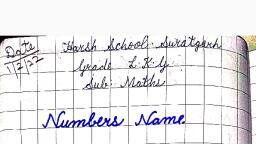 Date
1/2/22
Harsh School Suratgarh
Grade L.K.G
Sub: Maths
Numbers Name